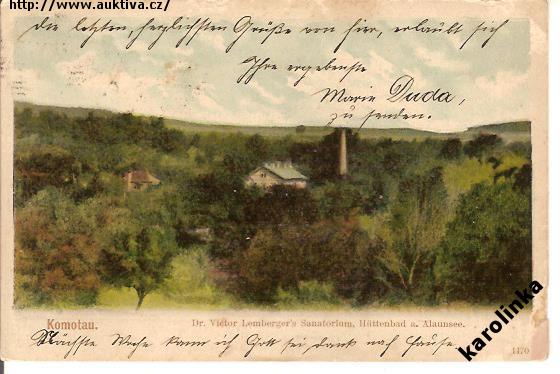 http://www.auktiva.cz/
die letzten, herzlichsten Grüße von hier, erlaubt sich
Ihre ergebenste
Marie Duda,
zu senden.
Komotau.
Dr. Victor Lemberger's Sanatorium, Hüttenbad a. Alaunsee.
Nächste Woche kann ich Gott sei, dank nach Hause.
1170
karolinka